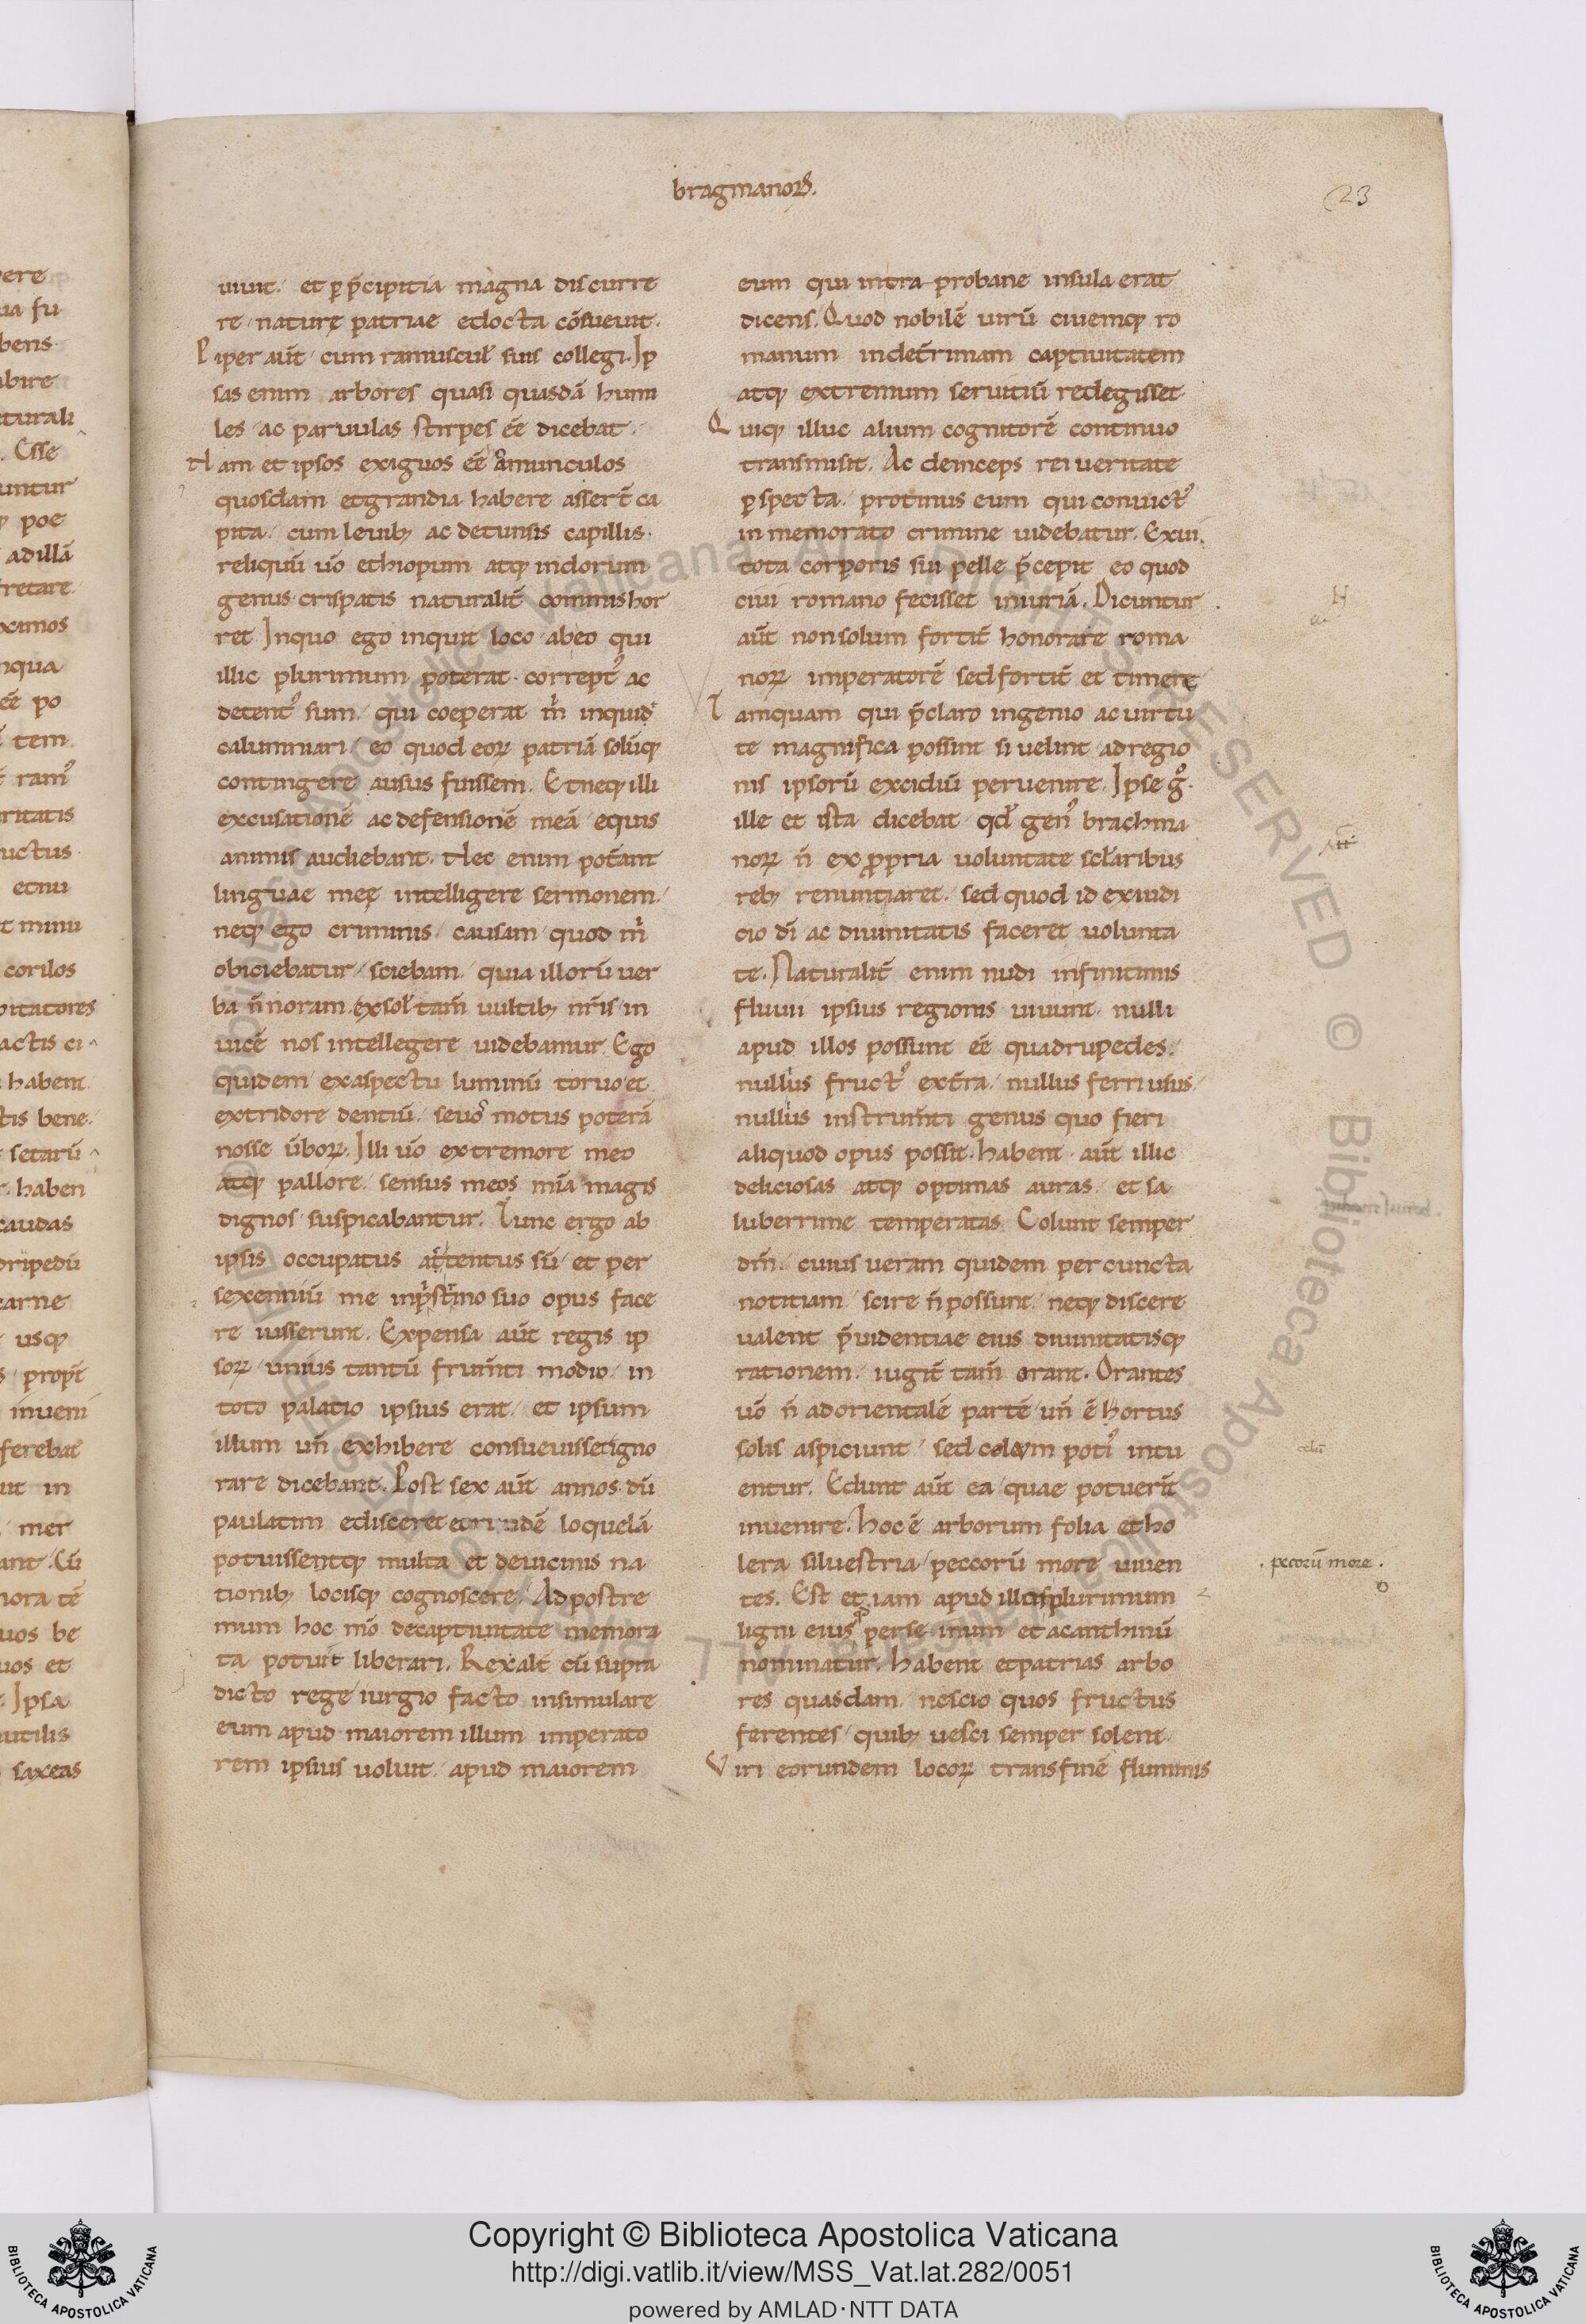 bragmanoꝝ.
23
uiuit. et ꝑ p̄cipitia magna discurre
re naturę patriae edocta cōsueuit.
Piper aut̄ cum ramuscul̄ suis collegi. Ip
sas enim arbores quasi quasdā humi
les ac paruulas stirpes eē dicebat.
Nam et ipsos exiguos eē homunculos
quosdam et grandia habere assert̄ ca
pita. cum leuibꝫ ac detunsis capillis.
reliquū uō ethiopum atqꝫ indorum
genus crispatis naturalit̄ comis hor
ret. Inquo ego inquit loco abeo qui
illic plurimum poterat. correptꝰ ac
detentꝰ sum. qui coeperat m̄ inquid
calumniari eo quod eoꝝ patriā solūqꝫ
contingere ausus fuissem. Et neqꝫ illi
excusationē ac defensionē meā equis
animis audiebant. Nec enim pot̄ant
linguae meę intelligere sermonem.
neqꝫ ego criminis causam quod m̄
obiciebatur sciebam. quia illorū uer
ba n̄ noram. ex sol̄ tam̄ uultibꝫ nr̄is in
uicē nos intellegere uidebamur. Ego
quidem exaspectu luminū toruo et
extridore dentiū. seuoꝝ motus poterā
nosse ūboꝝ. Illi uō extremore meo
atqꝫ pallore sensus meos mīa magis
dignos suspicabantur. Tunc ergo ab
ipsis occupatus attentus sū et per
sexenniū me inpistrino suo opus face
re iusserunt. Expensa aut̄ regis ip
soꝝ unius tantū frum̄ti modio in
toto palatio ipsius erat. et ipsum
illum un̄ exhibere consueuisset igno
rare dicebant. Post sex aut̄ annos dū
paulatim edisceret eorundē loquelā
potuissentqꝫ multa et deuicinis na
tionibꝫ locisqꝫ cognoscere. Ad postre
mum hoc mō decaptiuitate memora
ta potuit liberari. Rex alt̄ cū supra
dicto rege iurgio facto insimulare
eum apud maiorem illum imperato
rem ipsius uoluit. apud maiorem
eum qui intra probane insula erat
dicens. Quod nobilē uirū ciuemqꝫ ro
manum indet̄rimam captiuitatem
atqꝫ extremum seruitiū redegisset.
Quiqꝫ illuc alium cognitorē continuo
transmisit. Ac deinceps rei ueritate
ꝑspecta. protinus eum qui conuictꝰ
in memorato crimine uidebatur. Exui
tota corporis sui pelle p̄cepit eo quod
ciui romano fecisset iniuriā. Dicuntur
aut̄ non solum fortit̄ honorare roma
noꝝ imperatorē sed fortit̄ et timere
Tamquam qui p̄claro ingenio ac uirtu
te magnifica possint si uelint ad regio
nis ipsorū excidiū peruenire. Ipse gͦ
ille et ista dicebat qd̄ genꝰ brachma
noꝝ n̄ ex ꝓpria uoluntate sćlaribus
rebꝫ renuntiaret. sed quod id exiudi
cio dī ac diuinitatis faceret uolunta
te. Naturalit̄ enim nudi infinitimis
fluuii ipsius regionis uiuunt. nulli
apud illos possunt eē quadrupedes.
nullus fructꝰ ext̄ra. nullus ferri usus.
nullus instrum̄ti genus quo fieri
aliquod opus possit. habent aut̄ illic
deliciosas atqꝫ optimas auras et sa
luberrime temperatas. Colunt semper
dm̄. cuius ueram quidem per cuncta
notitiam scire n̄ possunt. neqꝫ discere
ualent p̄uidentiae eius diuinitatisqꝫ
rationem. iugit̄ tam̄ orant. Orantes
uō n̄ ad orientalē partē un̄ ē hortus
solis aspiciunt sed coleum potiꝰ intu
entur. Edunt aut̄ ea quae potuerū̄t
inuenire. hoc ē arborum folia et ho
lera siluestria peccorū more uiuen
tes. Est etiam apud illos plurimum
ligni eius perse inum et acanthinū
nominatur. habent et patrias arbo
res quasdam nescio quos fructus
ferentes quibꝫ uesci semper solent.
Viri eorundem locoꝝ transfinē fluminis
celū
. pecorū more .
Copyright © Biblioteca Apostolica Vaticana
http://digi.vatlib.it/view/MSS_Vat.lat.282/0051
powered by AMLAD·NTT DATA